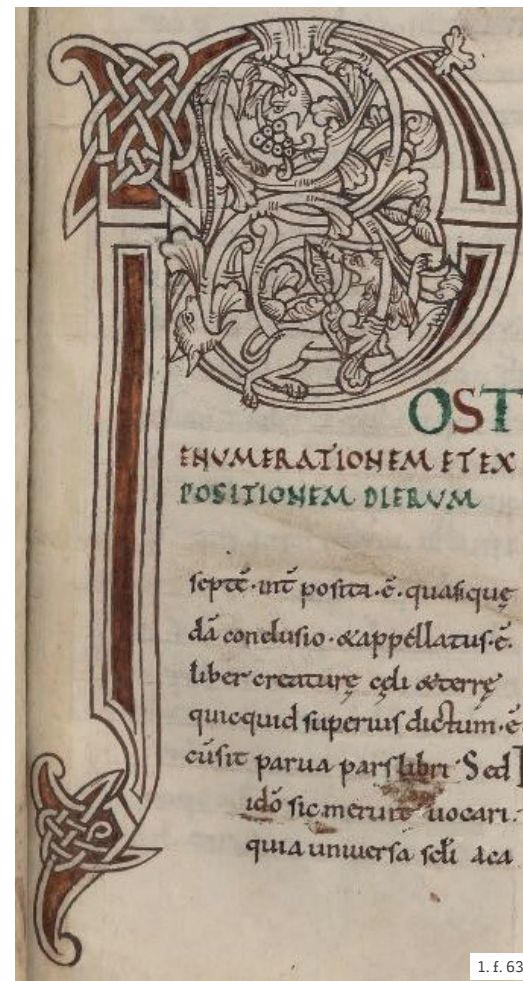 POST
ENUMERATIONEM ET EX
POSITIONEM DIERUM
septē · int̄ posita · ē · quasi quę
dā conclusio · & appellatus · ē ·
liber creaturę cęli & terrę
quicquid superius dictum · ē
cū sit parua pars libri · Sed
idō sic meruit uocari ·
quia uniuersa
1. f. 63